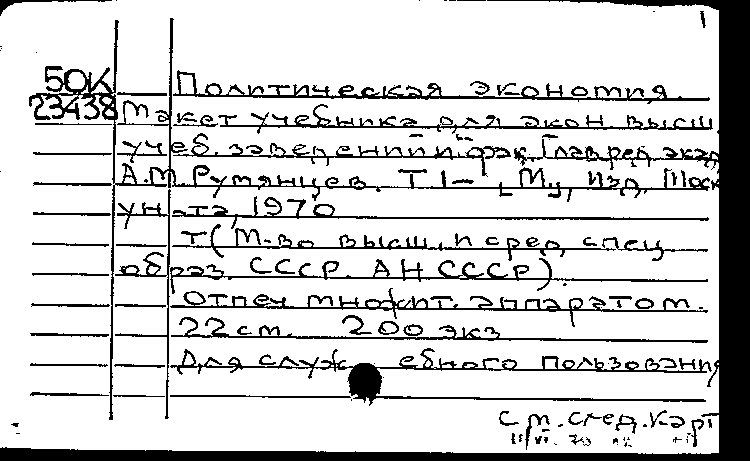 1
50К Политическая экономия.
23438 Макет учебника для экон. высш.
учеб. заведений и фак. Глав. ред. акад
А.М. Румянцев. Т 1- [М.], Изд. Моск
ун-та, 1970
т (М-во высш. и сред. спец.
образ. СССР. АН СССР).
Отпеч. множит. аппаратом.
22 см. 200 экз
Для служебного пользования
См. след. карт